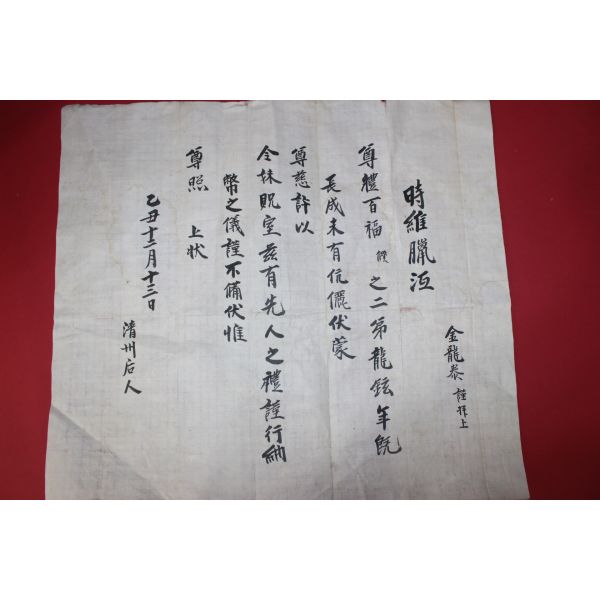 金龍泰 謹拜上
時維臘沍
尊體百福 僕之二第龍鉉年旣
長成未有伉儷伏蒙
尊慈許以
令妹貺室玆有先人之禮謹行納
幣之儀謹不備伏惟
尊照 上狀
乙丑十二月十三日
清州后人